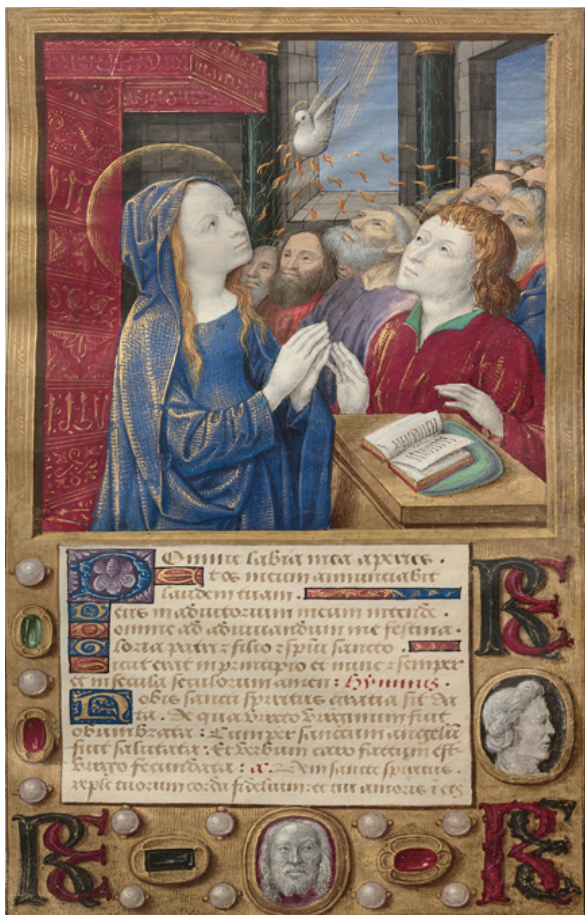 Domine labia mea aperies .
Et os meum annunciabit
laudem tuam .
Deus in adiutorium meum intende .
Domine ad adiuvandum me festina .
Gloria patri ⁊ filio ⁊ spũi sancto .
Sicut erat in principio et nunc ⁊ semper
et in secula seculorum amen : Hymnus .
Nobis sancti spiritus gratia sit da
ta . De qua virgo virginum fuit
obumbrata : Cum per sanctum angelũ
fuit salutata : Et verbum caro factum est
virgo fecundata : a. Veni sancte spiritus .
reple tuorum corda fidelium : et tui amoris i eis